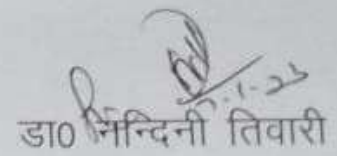 डा0 नन्दिनी तिवारी